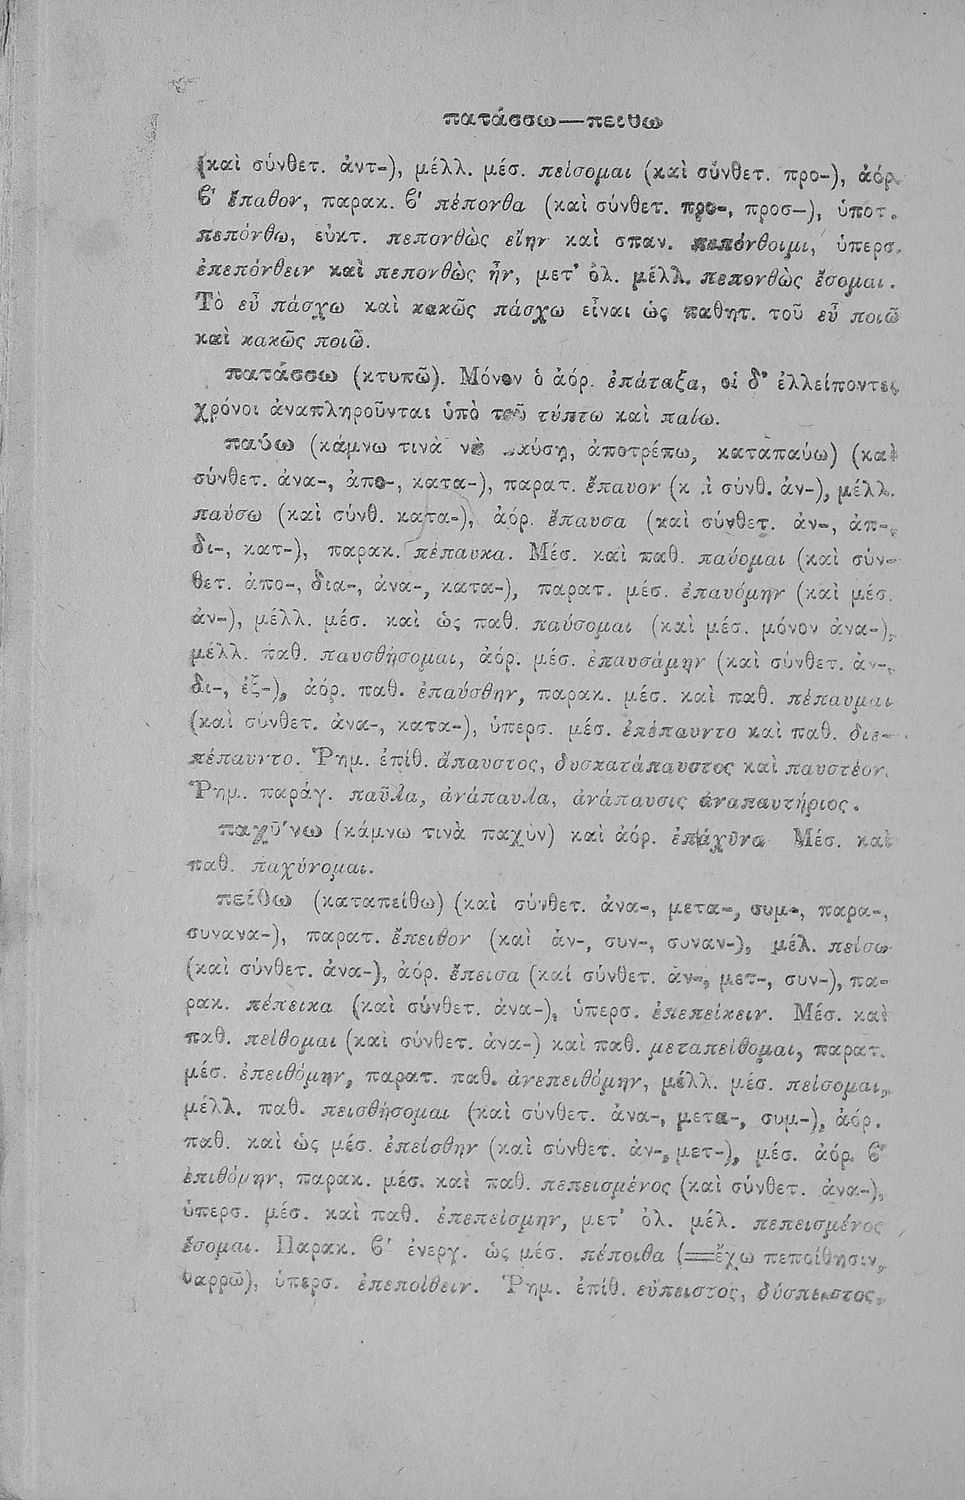 πατάσσω—πείθω
(καὶ σύνθετ. ἀντ-), μέλλ. μέσ. πείσομαι (καὶ σύνθετ. προ-), ἀόρ.
β' ἔπαθον, παρακ. β' πέπονθα (καὶ σύνθετ. προ-, προσ-), ὑποτ.
πεπόνθω, εὐκτ. πεπονθὼς εἴην καὶ σπαν. πεπόνθοιμι, ὑπερσ.
ἐπεπόνθειν καὶ πεπονθὼς ἦν, μετ' ὀλ. μέλλ. πεπονθὼς ἔσομαι.
Τὸ εὖ πάσχω καὶ κακῶς πάσχω εἶναι ὡς παθητ. τοῦ εὖ ποιῶ
καὶ κακῶς ποιῶ.
πατάσσω (κτυπῶ). Μόνον ὁ ἀόρ. ἐπάταξα, οἱ δ' ἐλλείποντες
χρόνοι ἀναπληροῦνται ὑπὸ τοῦ τύπτω καὶ παίω.
παύω (κάμνω τινὰ νὰ παύσῃ, ἀποτρέπω, καταπαύω) (καὶ
σύνθετ. ἀνα-, ἀπο-, κατα-), παρατ. ἔπαυον (καὶ σύνθ. ἀν-), μέλλ.
παύσω (καὶ σύνθ. κατα-), ἀόρ. ἔπαυσα (καὶ σύνθετ. ἀν-, ἀπ-,
δι-, κατ-), παρακ. πέπαυκα. Μέσ. καὶ παθ. παύομαι (καὶ σύν-
θετ. ἀπο-, δια-, ἀνα-, κατα-), παρατ. μέσ. ἐπαυόμην (καὶ μέσ.
ἀν-), μέλλ. μέσ. καὶ ὡς παθ. παύσομαι (καὶ μέσ. μόνον ἀνα-),
μέλλ. παθ. παυσθήσομαι, ἀόρ. μέσ. ἐπαυσάμην (καὶ σύνθετ. ἀν-,
δι-, ἐξ-), ἀόρ. παθ. ἐπαύσθην, παρακ. μέσ. καὶ παθ. πέπαυμαι
(καὶ σύνθετ. ἀνα-, κατα-), ὑπερσ. μέσ. ἐπέπαυντο καὶ παθ. διε-
πέπαυντο. Ῥημ. ἐπίθ. ἄπαυστος, δυσκατάπαυστος καὶ παυστέον.
Ῥημ. παράγ. παῦλα, ἀνάπαυλα, ἀνάπαυσις ἀναπαυτήριος.
παχύνω (κάμνω τινὰ παχὺν) καὶ ἀόρ. ἐπάχυνα Μέσ. καὶ
παθ. παχύνομαι.
πείθω (καταπείθω) (καὶ σύνθετ. ἀνα-, μετα-, συμ-, παρα-,
συνανα-), παρατ. ἔπειθον (καὶ ἀν-, συν-, συναν-), μέλ. πείσω
(καὶ σύνθετ. ἀνα-), ἀόρ. ἔπεισα (καί σύνθετ. ἀν-, μετ-, συν-), πα-
ρακ. πέπεικα (καὶ σύνθετ. ἀνα-), ὑπερσ. ἐπεπείκειν. Μέσ. καὶ
παθ. πείθομαι (καὶ σύνθετ. ἀνα-) καὶ παθ. μεταπείθομαι, παρατ.
μέσ. ἐπειθόμην, παρατ. παθ. ἀνεπειθόμην, μέλλ. μέσ. πείσομαι,
μέλλ. παθ. πεισθήσομαι (καὶ σύνθετ. ἀνα-, μετα-, συμ-), ἀόρ.
παθ. καὶ ὡς μέσ. ἐπείσθην (καὶ σύνθετ. ἀν-, μετ-), μέσ. ἀόρ. β'
ἐπιθόμην, παρακ. μέσ. καὶ παθ. πεπεισμένος (καὶ σύνθετ. ἀνα-),
ὑπερσ. μέσ. καὶ παθ. ἐπεπείσμην, μετ' ὀλ. μέλ. πεπεισμένος
ἔσομαι. Παρακ. β' ἐνεργ. ὡς μέσ. πέποιθα (=ἔχω πεποίθησιν,
θαρρῶ), ὑπερσ. ἐπεποίθειν. Ῥημ. ἐπίθ. εὔπειστος, δύσπειστος,